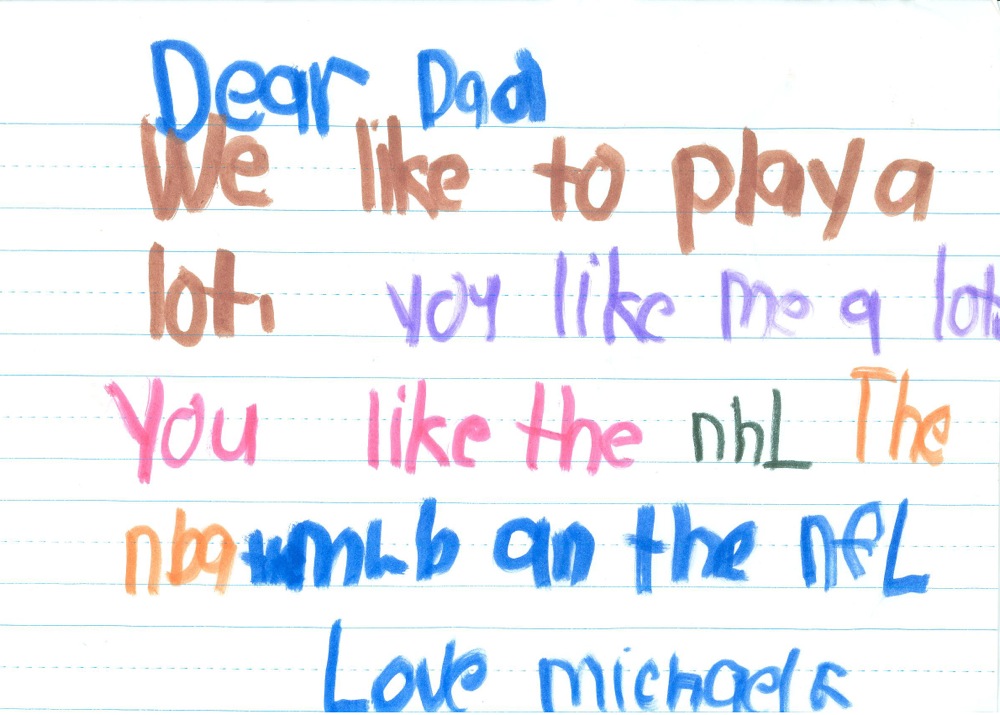 Dear Dad
We like to play a
lot. yoy like me a lot.
You like the nhL The
nba mLb an the nfL
Love michael R